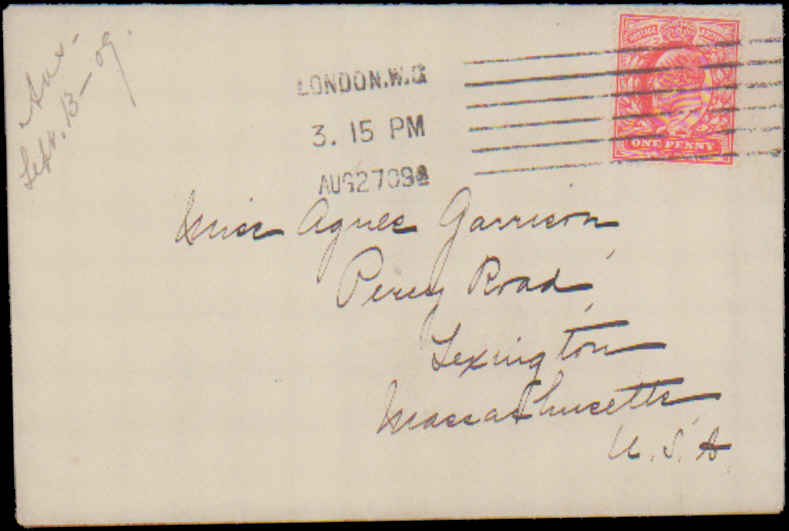 Ans.
Sept. 13 - 09.
LONDON.W.C
3. 15 PM
AUG 27 09
POSTAGE
ONE PENNY
Miss Agnes Garrison,
Percy Road,
Lexington
Massachusetts,
U.S.A